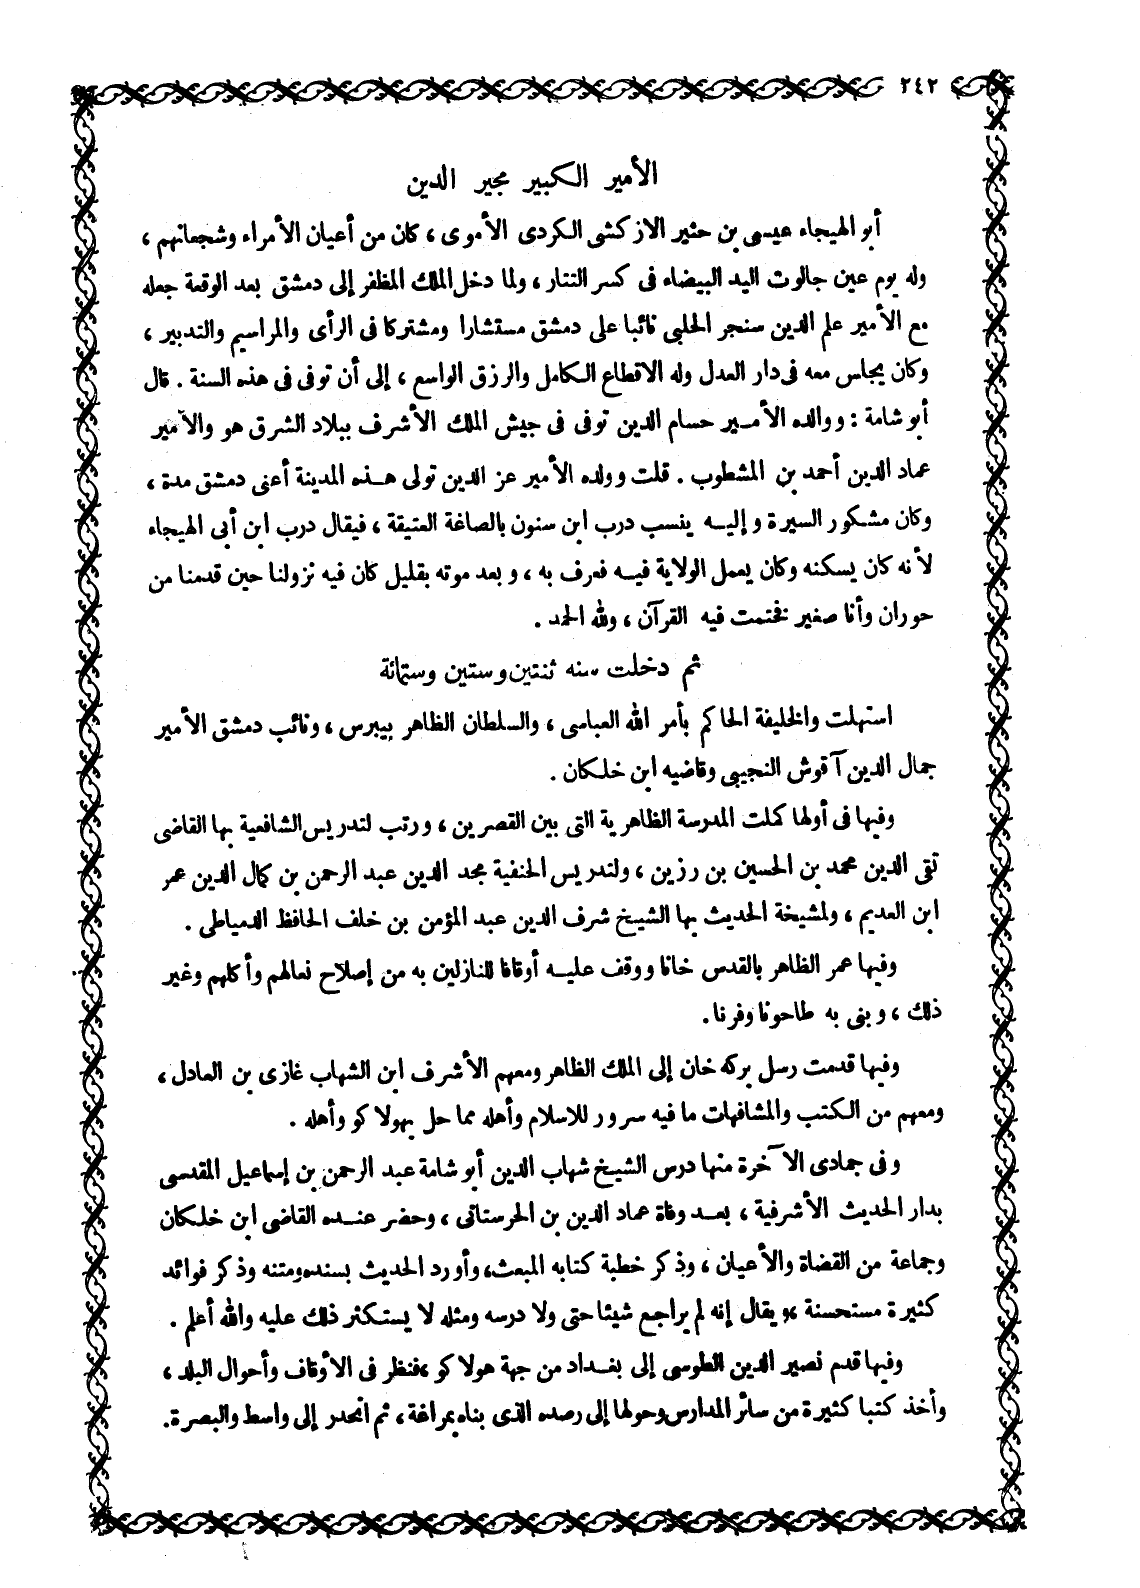 ٢٤٢
الأمير الكبير مجير الدين
أبو الهيجاء عيسى بن حثير الازكشى الكردى الأموى ، كان من أعيان الأمراء وشجعانهم ،
وله يوم عين جالوت اليد البيضاء فى كسر التتار ، ولما دخل الملك المظفر إلى دمشق بعد الوقعة جعله
مع الأمير علم الدين سنجر الحلبى نائبا على دمشق مستشارا ومشتركا فى الرأى والمراسيم والتدبير ،
وكان يجلس معه فى دار العدل وله الاقطاع الكامل والرزق الواسع ، إلى أن توفى فى هذه السنة . قال
أبو شامة : ووالده الأمير حسام الدين توفى فى جيش الملك الأشرف ببلاد الشرق هو والأمير
عماد الدين أحمد بن المشطوب . قلت وولده الأمير عز الدين تولى هذه المدينة أعنى دمشق مدة ،
وكان مشكور السيرة وإليه ينسب درب ابن سنون بالصاغة العتيقة ، فيقال درب ابن أبى الهيجاء
لأنه كان يسكنه وكان يعمل الولاية فيه فعرف به ، وبعد موته بقليل كان فيه نزولنا حين قدمنا من
حوران وأنا صغير فختمت فيه القرآن ، ولله الحمد .
ثم دخلت سنة ثنتين وستين وستمائة
استهلت والخليفة الحاكم بأمر الله العباسى ، والسلطان الظاهر بيبرس ، ونائب دمشق الأمير
جمال الدين آقوش النجيبى وقاضيه ابن خلكان .
وفيها فى أولها كملت المدرسة الظاهرية التى بين القصرين ، ورتب لتدريس الشافعية بها القاضى
تقى الدين محمد بن الحسين بن رزين ، ولتدريس الحنفية مجد الدين عبد الرحمن بن كمال الدين عمر
ابن العديم ، ولمشيخة الحديث بها الشيخ شرف الدين عبد المؤمن بن خلف الحافظ الدمياطى .
وفيها عمر الظاهر بالقدس خانا ووقف عليه أوقافا للنازلين به من إصلاح نعالهم وأكلهم وغير
ذلك ، وبنى به طاحونا وفرنا .
وفيها قدمت رسل بركه خان إلى الملك الظاهر ومعهم الأشرف ابن الشهاب غازى بن العادل ،
ومعهم من الكتب والمشافهات ما فيه سرور للاسلام وأهله مما حل بهولاكو وأهله .
وفى جمادى الآخرة منها درس الشيخ شهاب الدين أبو شامة عبد الرحمن بن إسماعيل المقدسى
بدار الحديث الأشرفية ، بعد وفاة عماد الدين بن الحرستانى ، وحضر عنده القاضى ابن خلكان
وجماعة من القضاة والأعيان ، وذكر خطبة كتابه المبعث ، وأورد الحديث بسنده ومتنه وذكر فوائد
كثيرة مستحسنة ، ويقال إنه لم يراجع شيئا حتى ولا درسه ومثله لا يستكثر ذلك عليه والله أعلم .
وفيها قدم نصير الدين الطوسى إلى بغداد من جهة هولاكو ، فنظر فى الأوقاف وأحوال البلد ،
وأخذ كتبا كثيرة من سائر المدارس وحولها إلى رصده الذى بناه بمراغة ، ثم انحدر إلى واسط والبصرة .